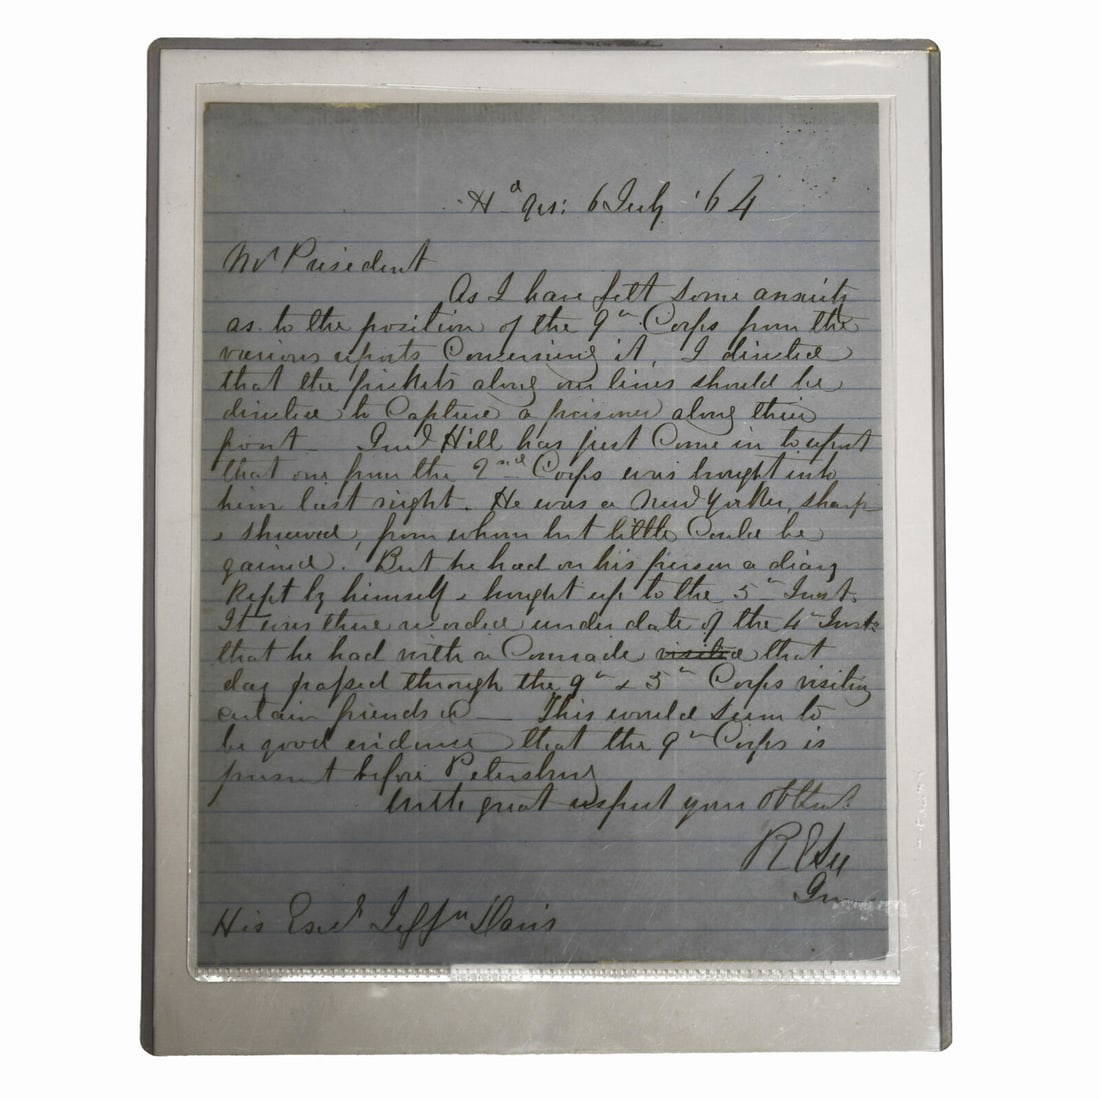 Hd qrs: 6 July '64
Mr President
As I have felt some anxiety
as to the position of the 9th Corps from the
various reports concerning it, I directed
that the pickets along our lines should be
directed to capture a prisoner along their
front – Genl Hill has just come in to report
that one from the Corps was brought into
him last night. He was a New Yorker, sharp
& shrewd, from whom but little could be
gained. But he had on his person a diary
kept by himself & brought up to the 5th Inst.
It was there recorded under date of the 4th Inst:
that he had with a Comrade visited that
day passed through the 9th & 5th Corps visiting
certain friends &c – This would seem to
be good evidence that the 9th Corps is
present before Petersburg
With great respect your obt svt.
R E Lee
Genl
His Excy Jeffn Davis